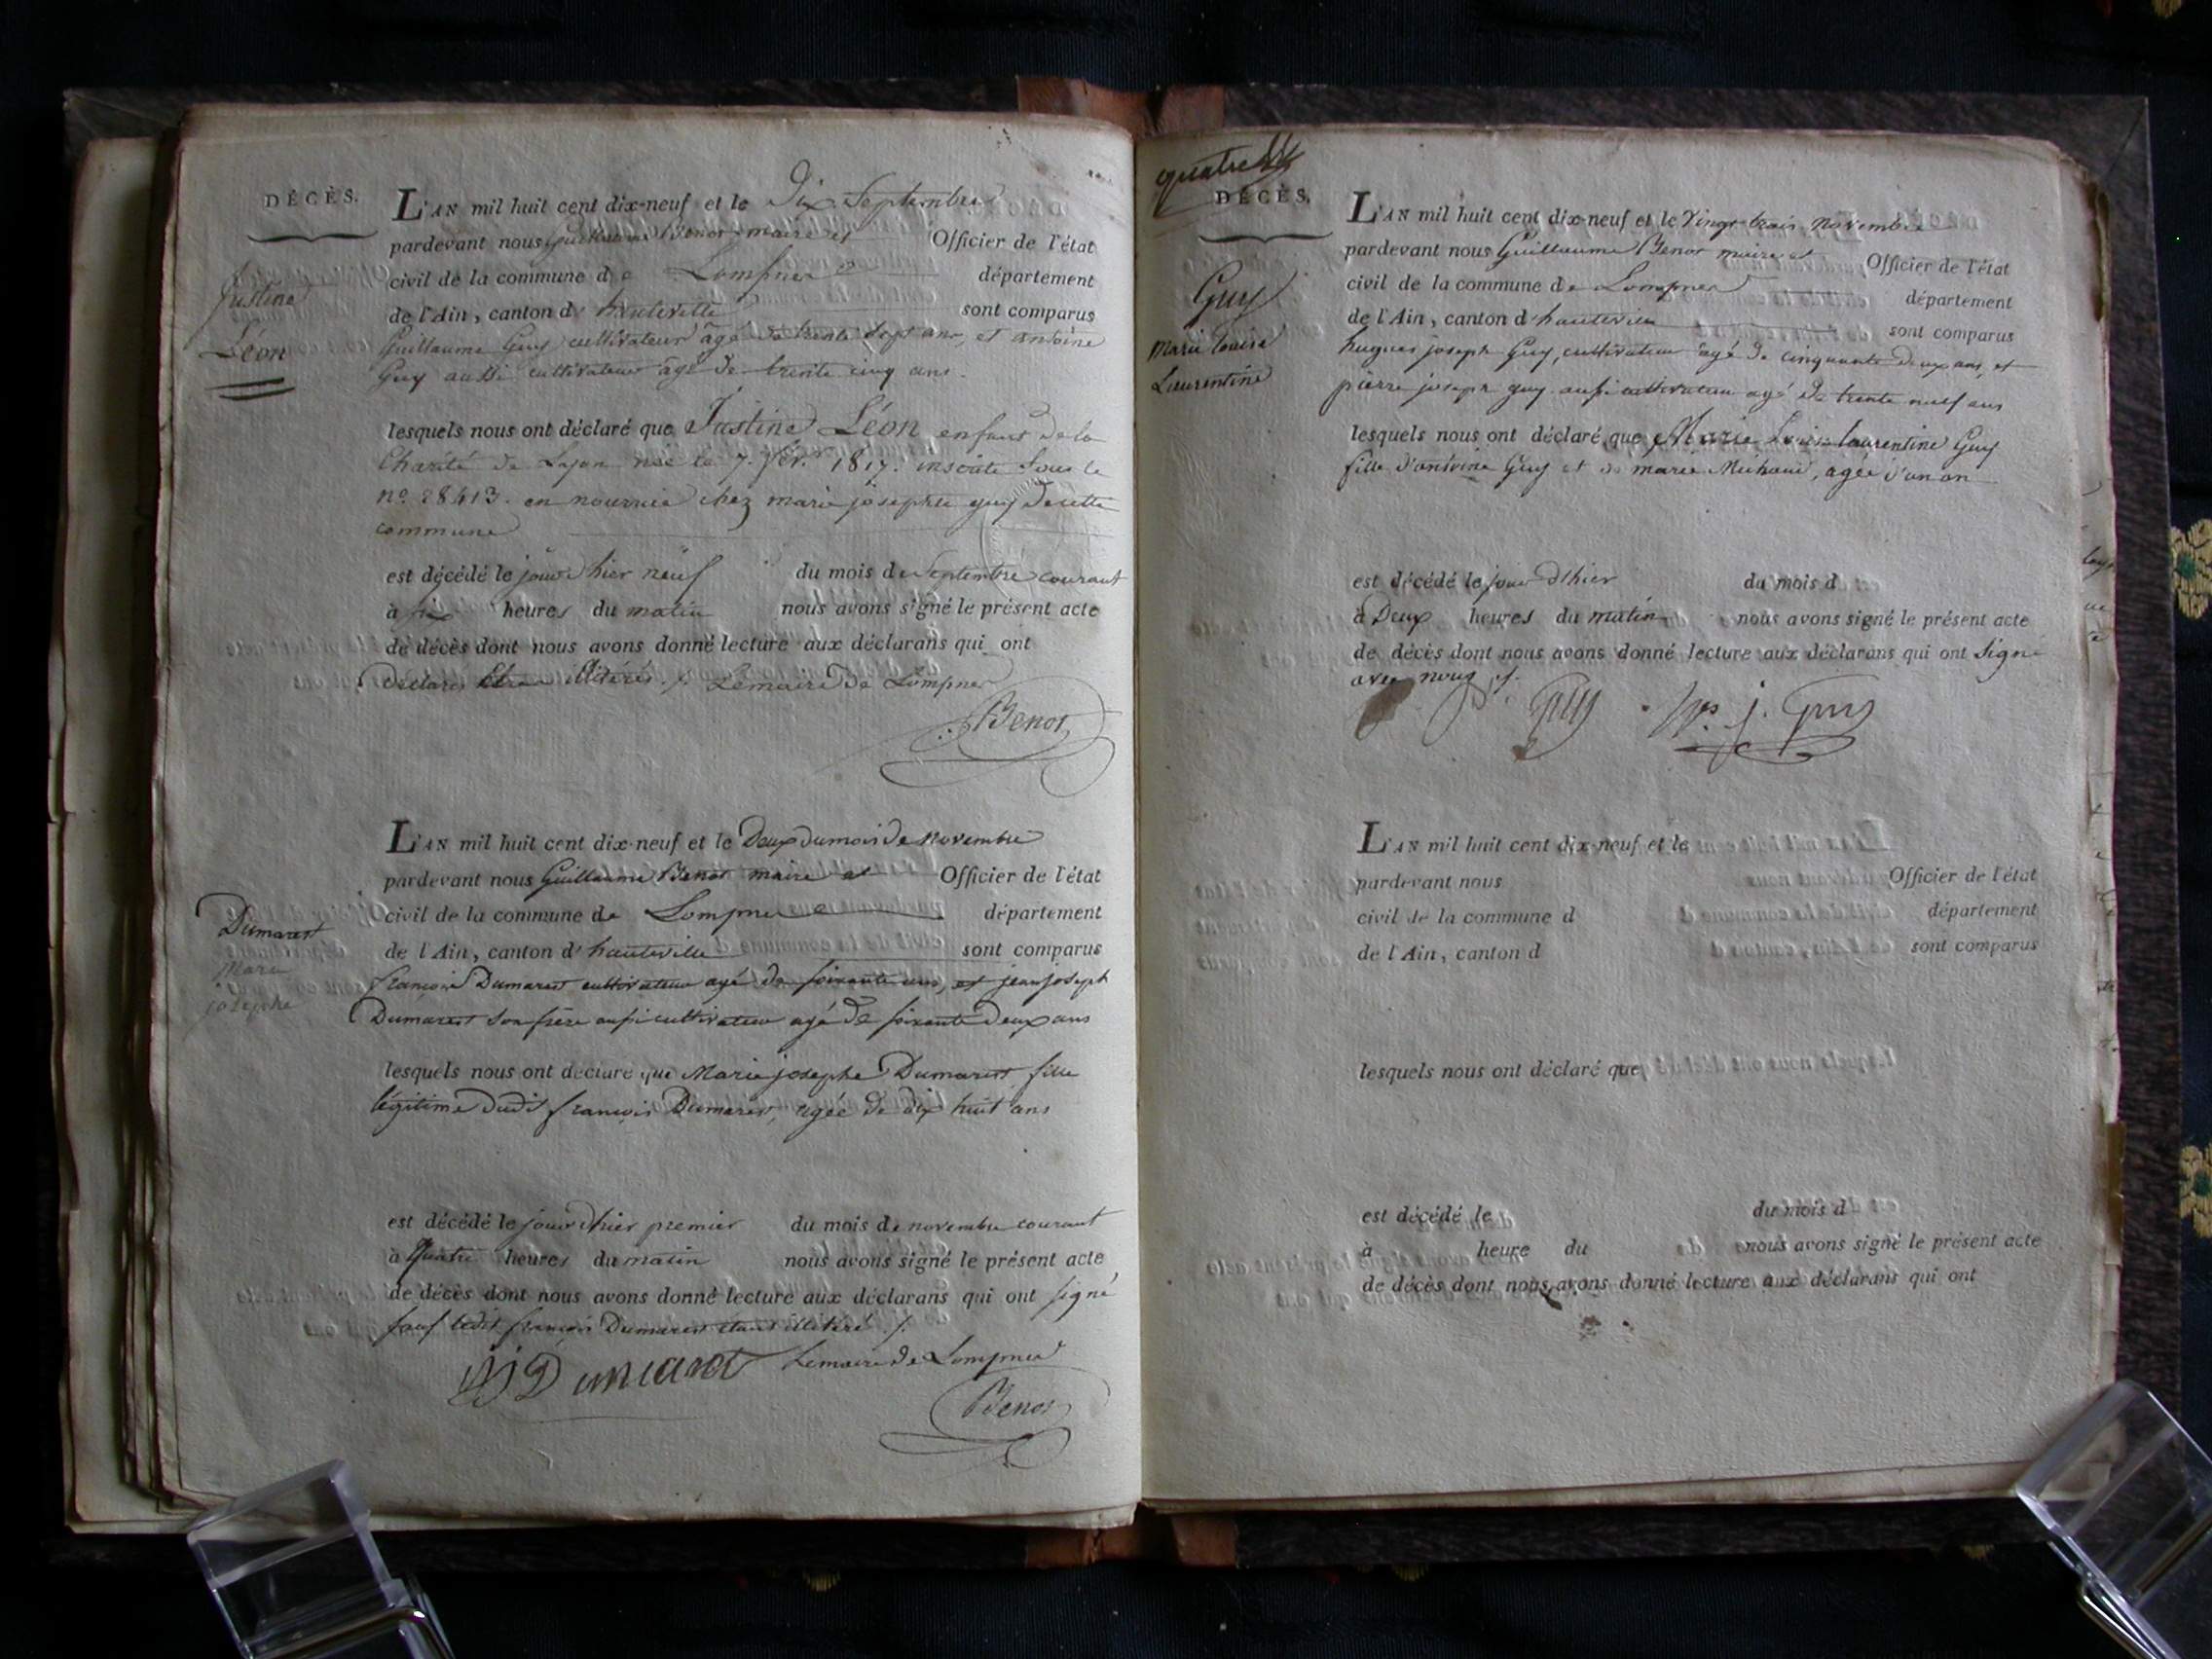 DÉCÈS.
Justine
Léon
L'AN mil huit cent dix-neuf et le Dix Septembre
pardevant nous Guillaume Benot maire et Officier de l'état
civil de la commune de Lompnes département
de l'Ain, canton d'hauteville sont comparus
Guillaume Guy cultivateur âgé de trente sept ans, et antoine
Guy aussi cultivateur âgé de trente cinq ans.
lesquels nous ont déclaré que Justine Léon enfant de la
Charité de Lyon née le 7. fév. 1817. inscrite sous le
no. 28413. en nourrice chez marie josephte guy de cette
commune
est décédé le jour d'hier neuf du mois de Septembre courant
à six heures du matin nous avons signé le présent acte
de décès dont nous avons donné lecture aux déclarans qui ont
Déclarés Etre illitérés ./. Lemaire de Lompnes
Benot
Dumarest
Marie
josephe
L'AN mil huit cent dix-neuf et le Deux du mois de Novembre
pardevant nous Guillaume Benot maire et Officier de l'état
civil de la commune de Lompnes département
de l'Ain, canton d'hauteville sont comparus
françois Dumarest cultivateur agé de soixante ans, et jean joseph
Dumarest son frère aussi cultivateur agé de soixante Deux ans
lesquels nous ont déclaré que Marie josephe Dumarest fille
légitime dudit françois Dumarest, agée de dix huit ans
est décédé le jour d'hier premier du mois de novembre courant
à Quatre heures du matin nous avons signé le présent acte
de décès dont nous avons donné lecture aux déclarans qui ont signé
sauf ledit françois Dumarest étant illitéré ./.
Dumarest Lemaire de Lompnes
Benot
quatre
DÉCÈS.
Guy
Marie Louise
Laurentine
L'AN mil huit cent dix-neuf et le Vingt trois Novembre
pardevant nous Guillaume Benot maire et Officier de l'état
civil de la commune de Lompnes département
de l'Ain, canton d'hauteville sont comparus
hugues joseph Guy, cultivateur agé de cinquante deux ans, et
pierre joseph guy aussi cultivateur agé de trente neuf ans
lesquels nous ont déclaré que Marie Louise laurentine Guy
fille d'antoine Guy et de marie Michaud, agée d'un an
est décédé le jour d'hier du mois d
à Deux heures du matin nous avons signé le présent acte
de décès dont nous avons donné lecture aux déclarans qui ont Signé
avec nous ./.
Guy j. Guy
L'AN mil huit cent dix-neuf et le
pardevant nous Officier de l'état
civil de la commune d département
de l'Ain, canton d sont comparus
lesquels nous ont déclaré que
est décédé le du mois d
à heure du nous avons signé le présent acte
de décès dont nous avons donné lecture aux déclarans qui ont